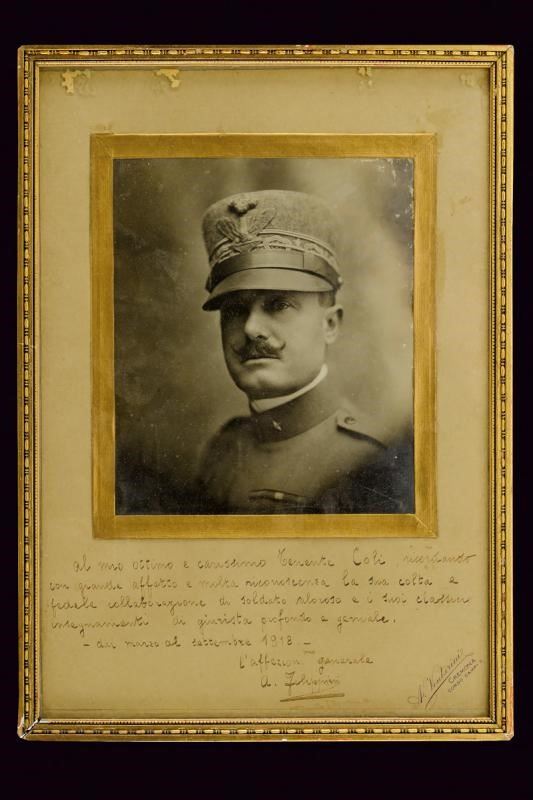 Al mio ottimo e carissimo Tenente Coli, ricordando
con grande affetto e molta riconoscenza la sua colta e
fedele collaborazione di soldato valoroso e i suoi classici
insegnamenti di giurista profondo e geniale.
– dal marzo al settembre 1918 –
l'affezion.mo generale
A.
CREMONA
CORSO